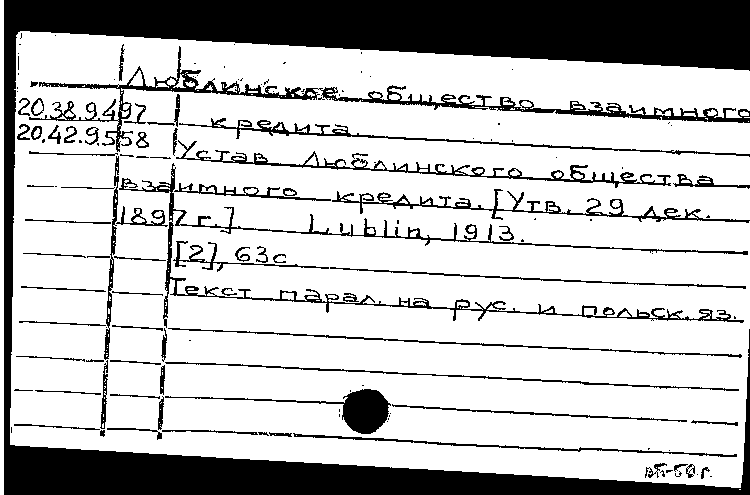 Люблинское общество взаимного
20.38.9.497 кредита.
20.42.9.558 Устав Люблинского общества
взаимного кредита. [Утв. 29 дек.
1897 г.]. Lublin, 1913.
[2], 63с.
Текст парал. на рус. и польск. яз.